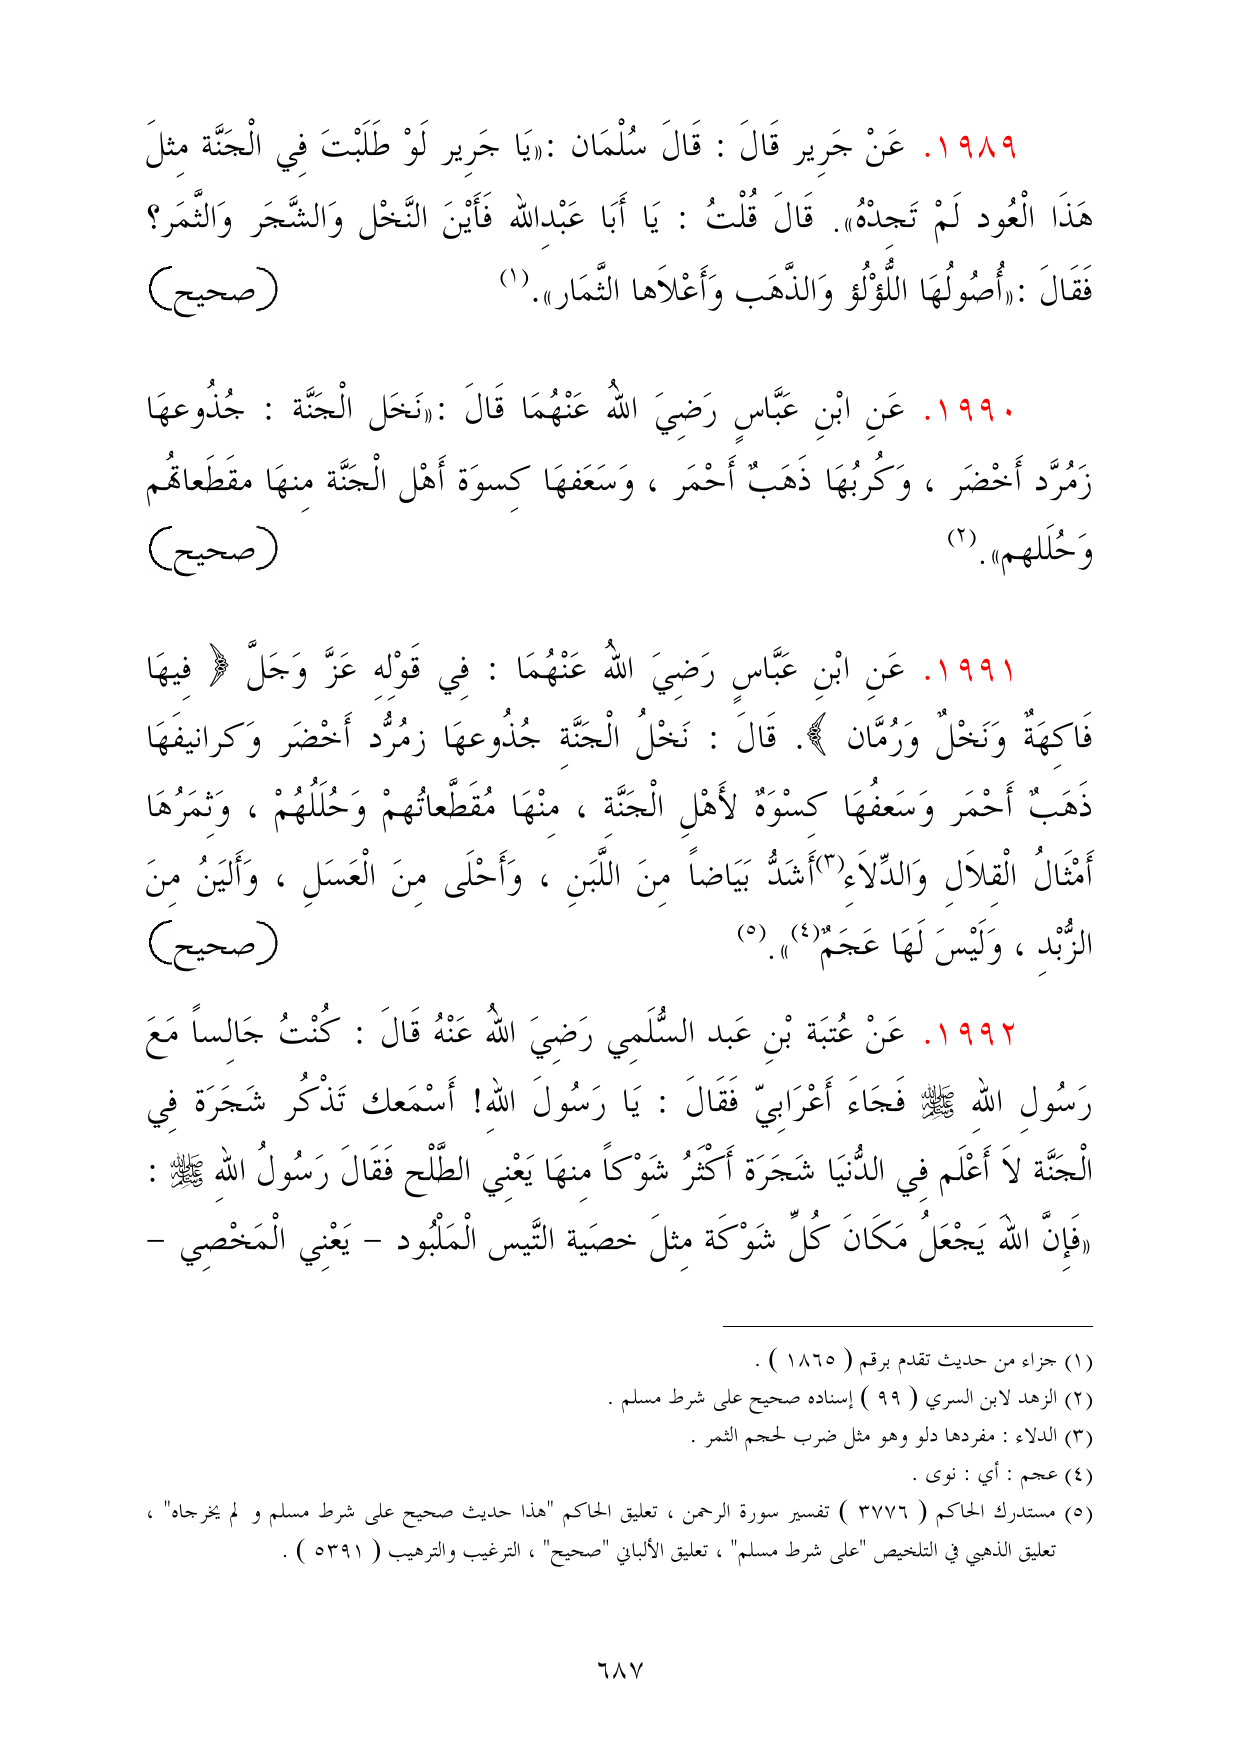 ١٩٨٩. عَنْ جَرِير قَالَ : قَالَ سُلْمَان :«يَا جَرِير لَوْ طَلَبْتَ فِي الْجَنَّة مِثلَ
هَذَا الْعُود لَمْ تَجِدْهُ». قَالَ قُلْتُ : يَا أَبَا عَبْدِالله فَأَيْنَ النَّخْل وَالشَّجَر وَالثَّمَر؟
فَقَالَ :«أُصُولُهَا اللُّؤْلُؤ وَالذَّهَب وَأَعْلاَها الثَّمَار».(١) (صحيح)
١٩٩٠. عَنِ ابْنِ عَبَّاسٍ رَضِيَ اللهُ عَنْهُمَا قَالَ :«نَخَل الْجَنَّة : جُذُوعهَا
زَمُرَّد أَخْضَر ، وَكُرُبُهَا ذَهَبٌ أَحْمَر ، وَسَعَفهَا كِسوَة أَهْل الْجَنَّة مِنهَا مقَطَعاتُهُم
وَحُلَلهم».(٢) (صحيح)
١٩٩١. عَنِ ابْنِ عَبَّاسٍ رَضِيَ اللهُ عَنْهُمَا : فِي قَوْلِهِ عَزَّ وَجَلَّ ﴿ فِيهَا
فَاكِهَةٌ وَنَخْلٌ وَرُمَّان ﴾. قَالَ : نَخْلُ الْجَنَّةِ جُذُوعهَا زمُرُّد أَخْضَر وَكرانيفَهَا
ذَهَبٌ أَحْمَر وَسَعفُهَا كِسْوَةٌ لأَهْلِ الْجَنَّةِ ، مِنْهَا مُقَطَّعاتُهمْ وَحُلَلُهُمْ ، وَثمَرُهَا
أَمْثَالُ الْقِلاَلِ وَالدِّلاَءِ(٣)أَشَدُّ بَيَاضاً مِنَ اللَّبَنِ ، وَأَحْلَى مِنَ الْعَسَلِ ، وَأَليَنُ مِنَ
الزُّبْدِ ، وَلَيْسَ لَهَا عَجَمٌ(٤)».(٥) (صحيح)
١٩٩٢. عَنْ عُتبَة بْنِ عَبد السُّلَمِي رَضِيَ اللهُ عَنْهُ قَالَ : كُنْتُ جَالِساً مَعَ
رَسُولِ اللهِ ﷺ فَجَاءَ أَعْرَابِيّ فَقَالَ : يَا رَسُولَ اللهِ! أَسْمَعك تَذْكُر شَجَرَة فِي
الْجَنَّة لاَ أَعْلَم فِي الدُّنيَا شَجَرَة أَكْثَرُ شَوْكاً مِنهَا يَعْنِي الطَّلْح فَقَالَ رَسُولُ اللهِ ﷺ :
«فَإِنَّ اللهَ يَجْعَلُ مَكَانَ كُلِّ شَوْكَة مِثلَ خصَية التَّيس الْمَلْبُود – يَعْنِي الْمَخْصِي –
(١) جزاء من حديث تقدم برقم ( ١٨٦٥ ) .
(٢) الزهد لابن السري ( ٩٩ ) إسناده صحيح على شرط مسلم .
(٣) الدلاء : مفردها دلو وهو مثل ضرب لحجم الثمر .
(٤) عجم : أي : نوى .
(٥) مستدرك الحاكم ( ٣٧٧٦ ) تفسير سورة الرحمن ، تعليق الحاكم "هذا حديث صحيح على شرط مسلم و لم يخرجاه" ،
تعليق الذهبي في التلخيص "على شرط مسلم" ، تعليق الألباني "صحيح" ، الترغيب والترهيب ( ٥٣٩١ ) .
٦٨٧